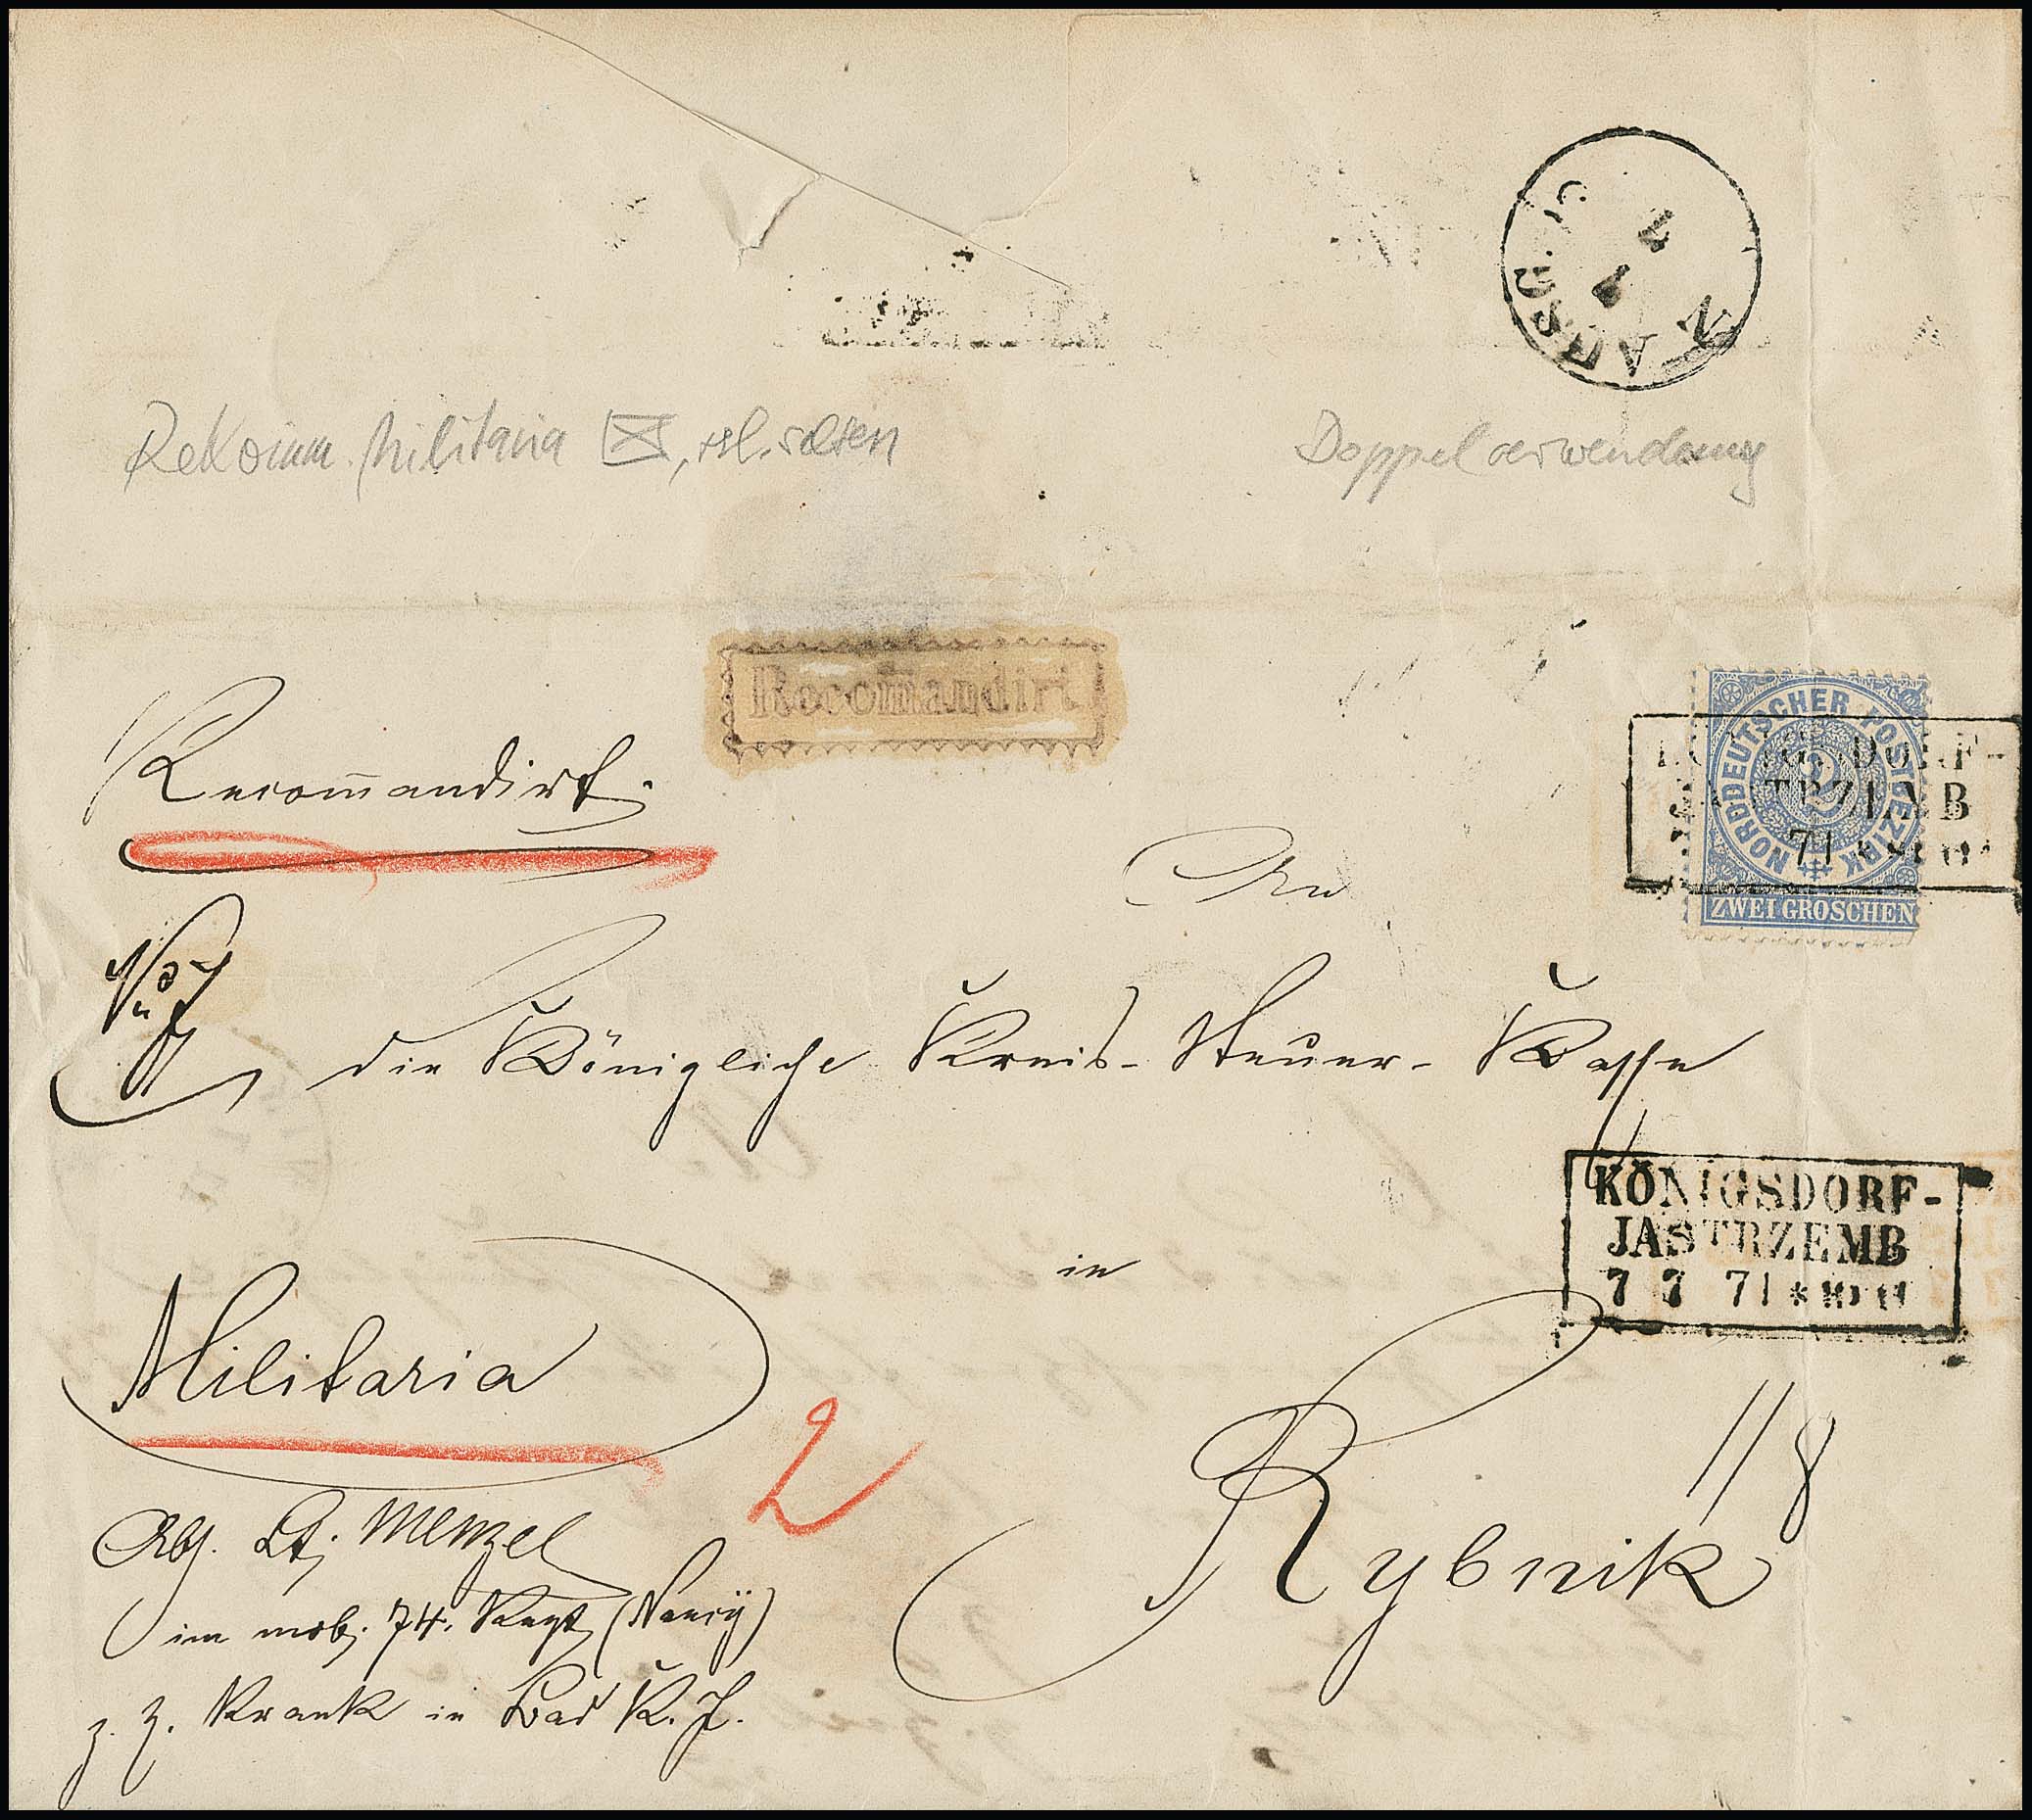 AUSG. N
7 7
Rekomm. Militaria, rel. selten
Doppelverwendung
Recomandirt
Recom̄andirt.
NORDDEUTSCHER POSTBEZIRK
2
ZWEI GROSCHEN
KÖNIGSDORF-
JASTRZEMB
71
An
die Königliche Kreis-Steuer-Kasse
KÖNIGSDORF-
JASTRZEMB
7 7 71 *
in
Militaria
2
Rybnik
Abs. Lt. Menzel
im mob. 74. Regt. (Nancÿ)
z. Z. Krank in Bad K. J.